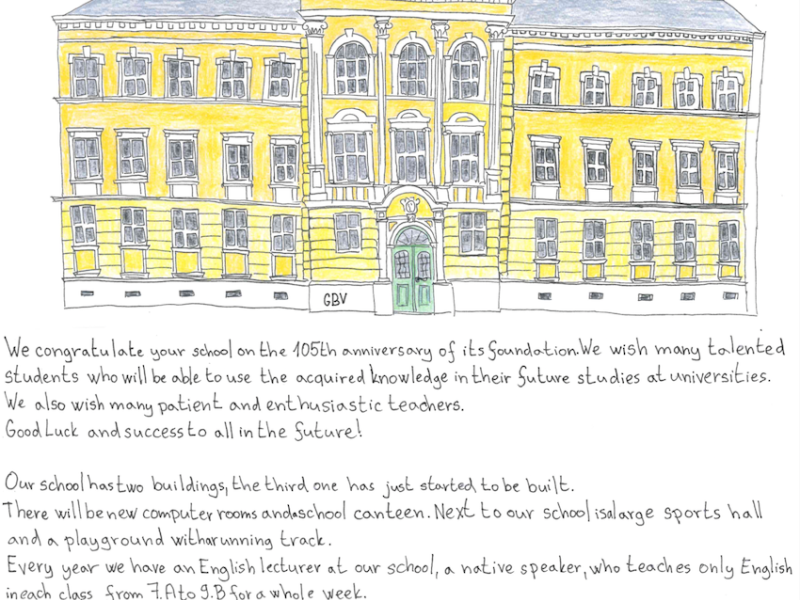 GBV
We congratulate your school on the 105th anniversary of its foundation. We wish many talented
students who will be able to use the acquired knowledge in their future studies at universities.
We also wish many patient and enthusiastic teachers.
Good Luck and success to all in the future!
Our school has two buildings, the third one has just started to be built.
There will be new computer rooms and a school canteen. Next to our school is a large sports hall
and a playground with a running track.
Every year we have an English lecturer at our school, a native speaker, who teaches only English
in each class from 7.A to 9.B for a whole week.